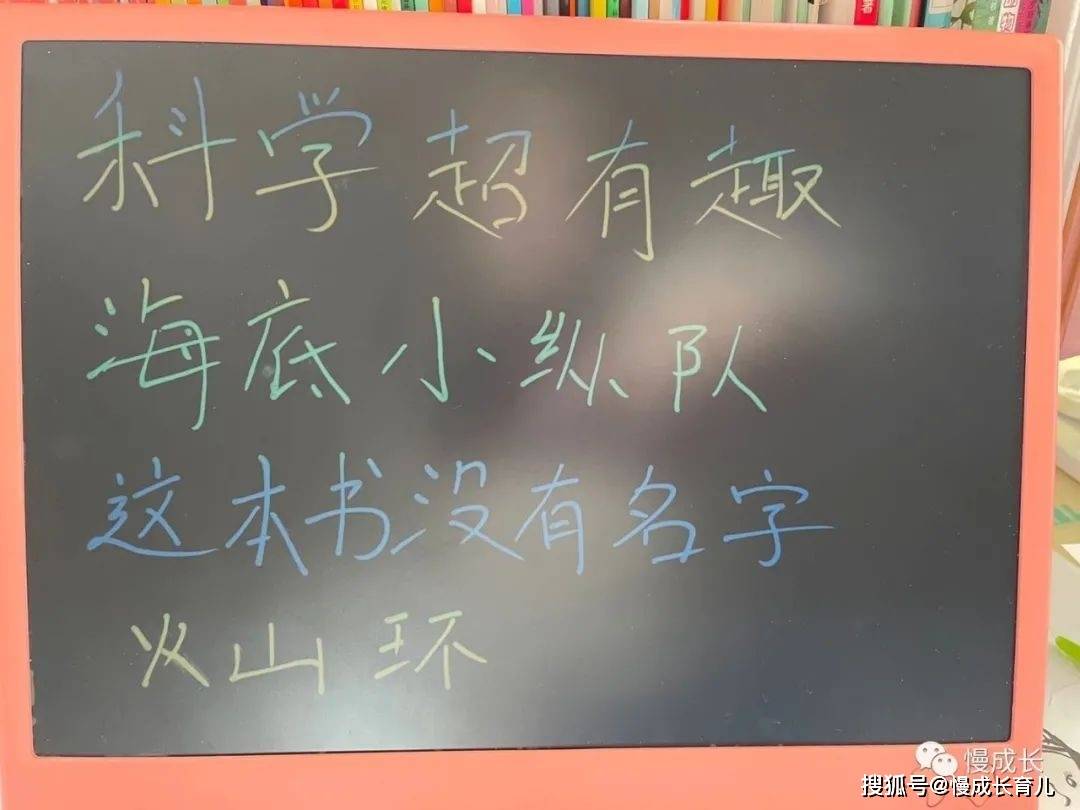 科学超有趣
海底小纵队
这本书没有名字
火山环
慢成长
搜狐号@慢成长育儿